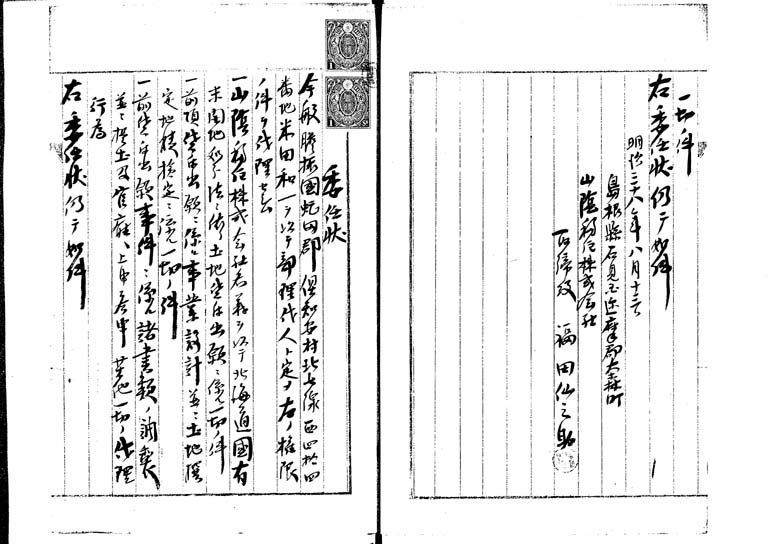 一切ノ件
右委任状仍テ如件
明治三十八年八月十三日
島根縣石見国迩摩郡大森町
山陰移住株式会社
取締役 福田仙之助
委任状
今般膽振國虻田郡倶知安村北七線西四拾四
番地米田和一ヲ以テ部理代人ト定メ左ノ権限
ノ件ヲ代理セシム
一山陰移住株式会社名義ヲ以テ北海道國有
未開地処分法ニ依リ土地貸付出願ニ係ル一切ノ件
一前項貸付出願ニ係ル事業設計並ニ土地選
定地積検定ニ係ル一切ノ件
一前貸付出願事件ニ係ル諸書類ノ調製
並ニ 官廰ヘ上申答申其他一切ノ代理
行為
右委任状仍テ如件